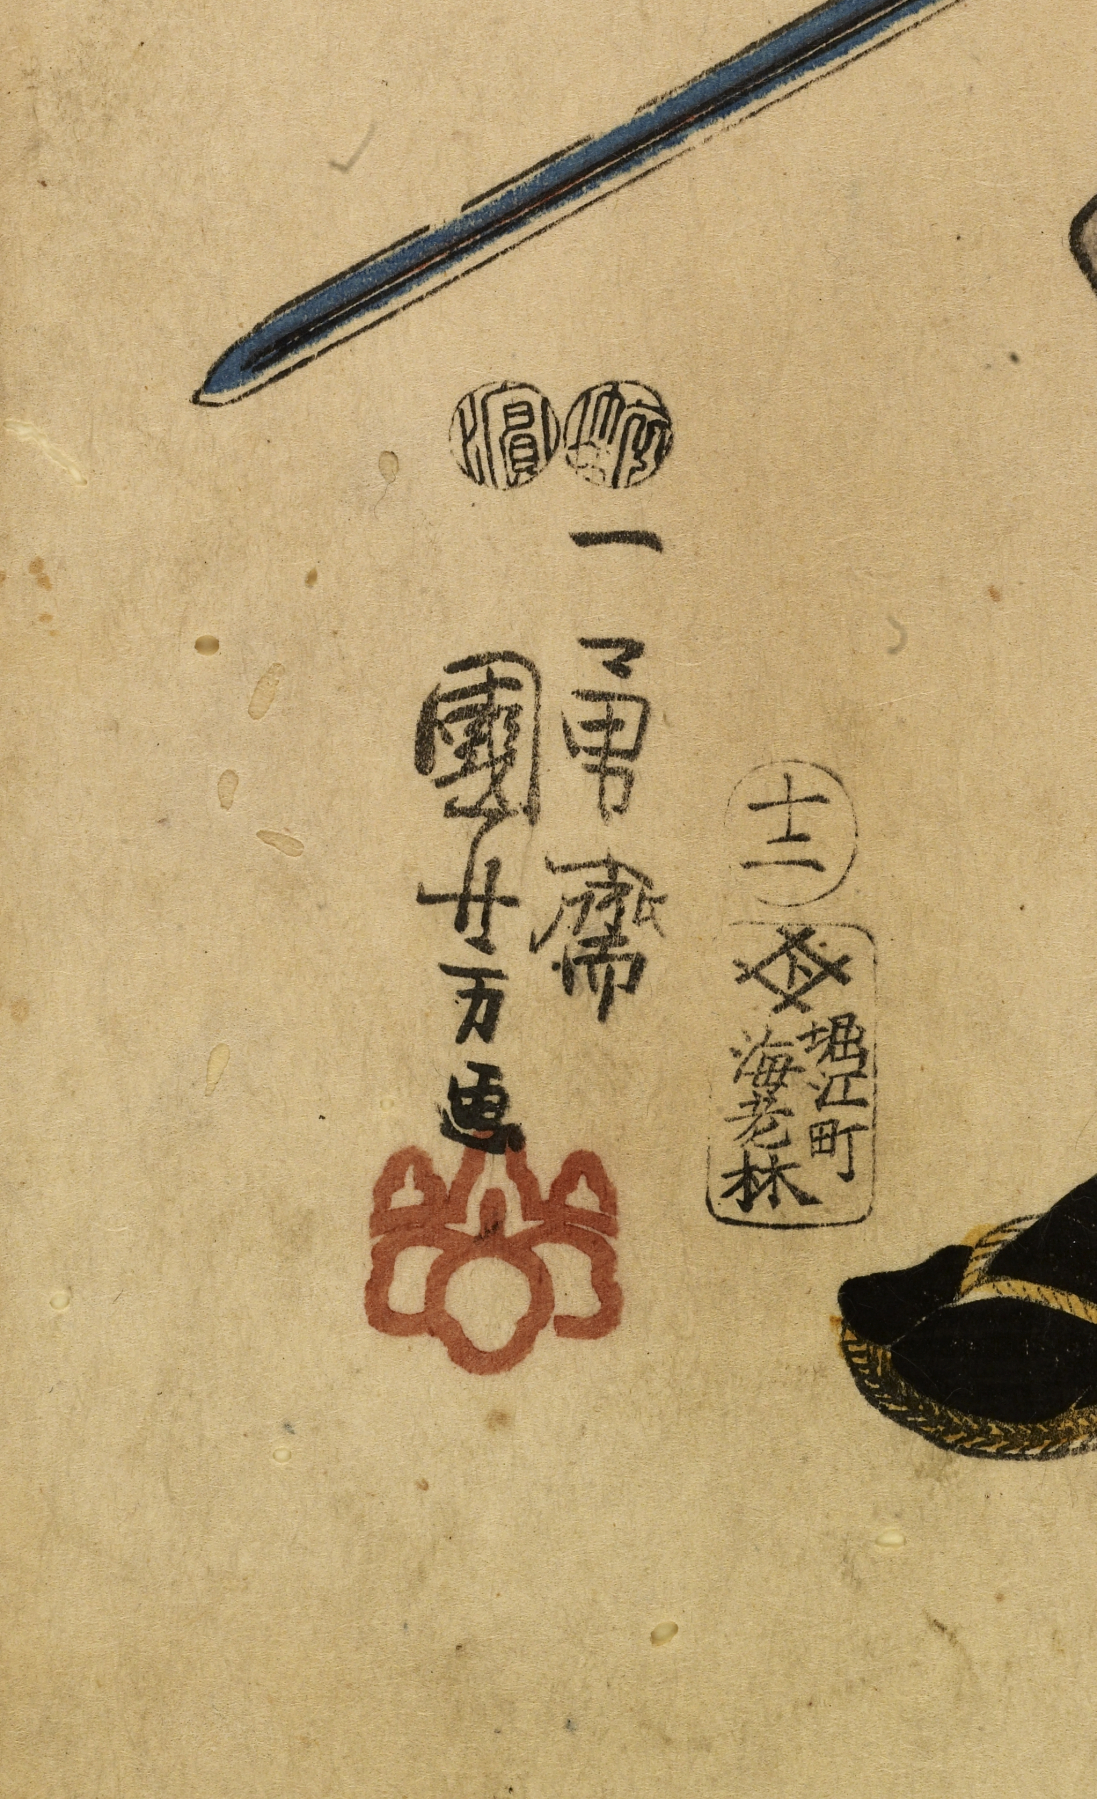 濱
一勇齋
國芳画
十二
堀江町
海老林